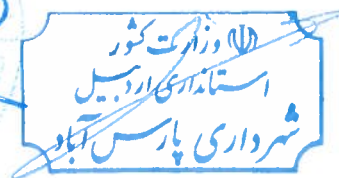 وزارت کشور
استانداری اردبیل
شهرداری پارس آباد